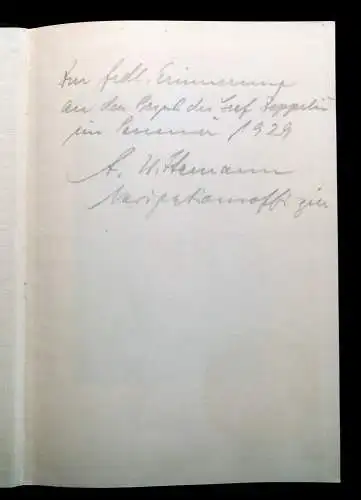 Zur frdl. Erinnerung
an den Besuch des Graf Zeppelin
im Sommer 1929
A. Wittemann
Navigationsoffizier